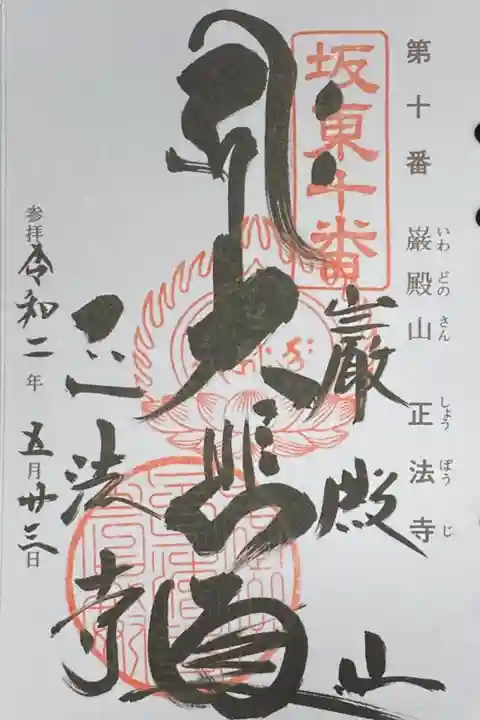 第十番 巌殿山 正法寺
いわ どの さん しょう ぼう じ
坂東十番
巌殿山
大悲殿
正法寺
参拝 令和二年 五月廿三日